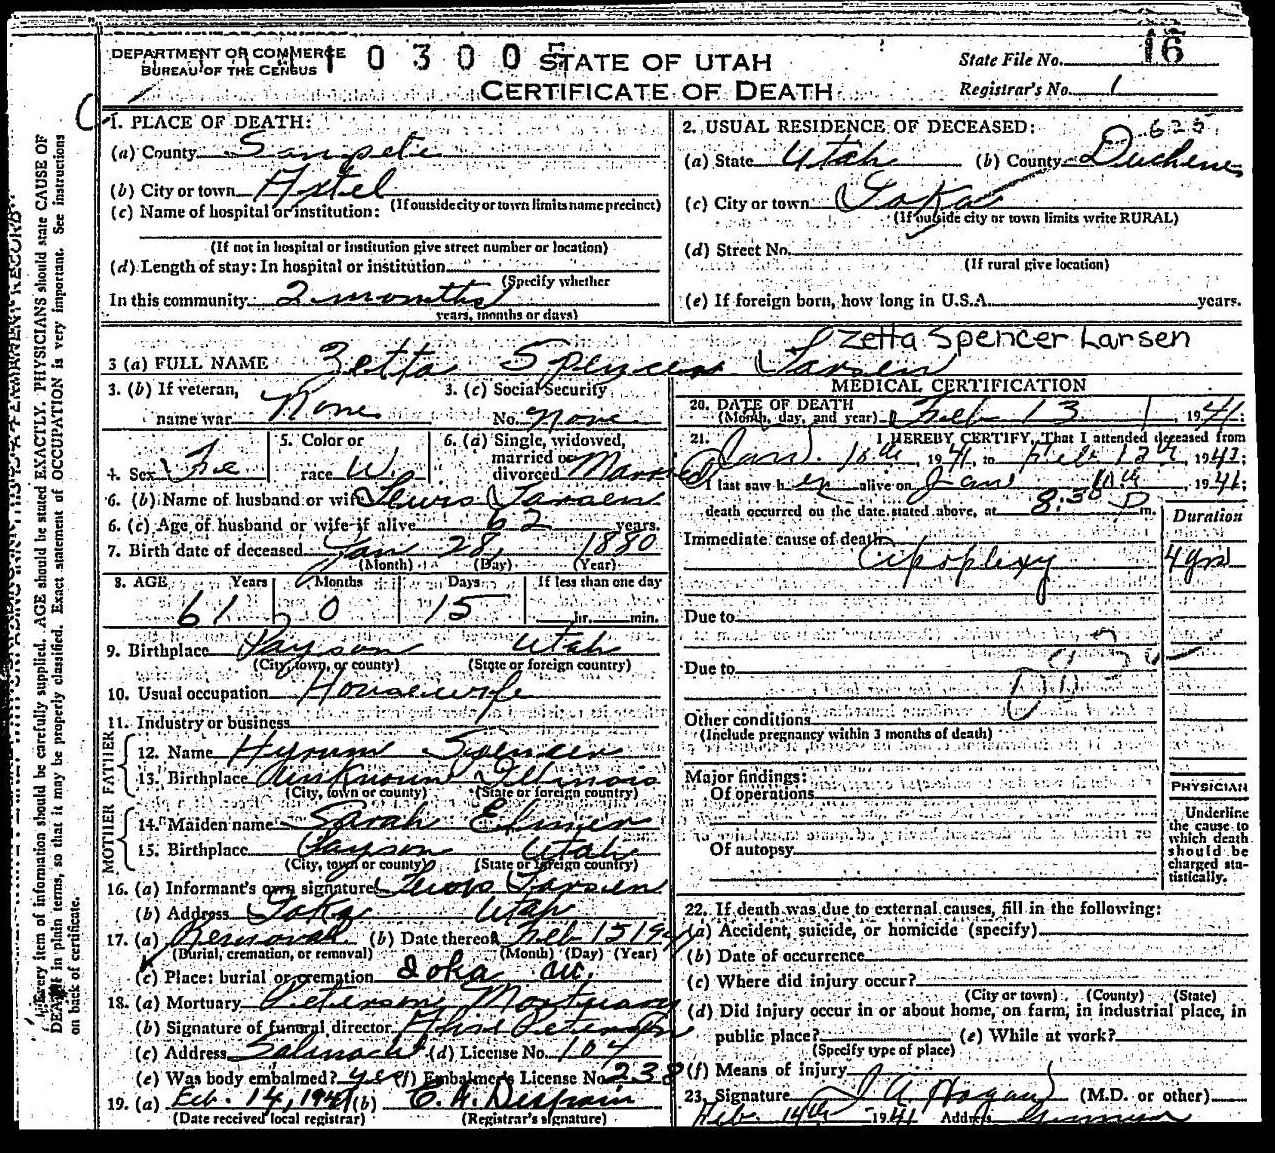 DEPARTMENT OF COMMERCE
BUREAU OF THE CENSUS
0 3 0 0 5
STATE OF UTAH
CERTIFICATE OF DEATH
State File No. 16
Registrar's No. 1
1. PLACE OF DEATH:
(a) County Sanpete
(b) City or town Axtel
(If outside city or town limits name precinct)
(c) Name of hospital or institution:
(If not in hospital or institution give street number or location)
(d) Length of stay: In hospital or institution
(Specify whether
In this community 2 months
years, months or days)
2. USUAL RESIDENCE OF DECEASED: 625
(a) State Utah (b) County Duchene
(c) City or town Ioka
(If outside city or town limits write RURAL)
(d) Street No.
(If rural give location)
(e) If foreign born, how long in U.S.A. years.
Ozetta Spencer Larsen
3 (a) FULL NAME Zetta Spencer Larsen
3. (b) If veteran,
name war None
3. (c) Social Security
No. None
4. Sex Fe
5. Color or
race W
6. (a) Single, widowed,
married or
divorced Married
6. (b) Name of husband or wife Lewis Larsen
6. (c) Age of husband or wife if alive 62 years.
7. Birth date of deceased Jan 28, 1880
(Month) (Day) (Year)
8. AGE Years Months Days If less than one day
61 0 15 hr. min.
9. Birthplace Payson Utah
(City, town, or county) (State or foreign country)
10. Usual occupation Housewife
11. Industry or business
FATHER
12. Name Hyrum Spencer
13. Birthplace Unknown Illinois
(City, town or county) (State or foreign country)
MOTHER
14. Maiden name Sarah Elmer
15. Birthplace Payson Utah
(City, town or county) (State or foreign country)
16. (a) Informant's own signature Lewis Larsen
(b) Address Ioka Utah
17. (a) Removal (b) Date thereof Feb 15 1941
(Burial, cremation, or removal) (Month) (Day) (Year)
(c) Place: burial or cremation Ioka Ut.
18. (a) Mortuary Peterson Mortuary
(b) Signature of funeral director Peterson
(c) Address Salina Ut (d) License No. 104
(e) Was body embalmed? yes (f) Embalmer's License No. 238
19. (a) Feb. 14, 1941 (b) C. A. Despain
(Date received local registrar) (Registrar's signature)
MEDICAL CERTIFICATION
20. DATE OF DEATH
(Month, day, and year) Feb 13 1941
21. I HEREBY CERTIFY, That I attended deceased from
Jan. 10th, 1941, to Feb 12th, 1941;
I last saw her alive on Jan 10th, 1941;
death occurred on the date stated above, at 8:30 P m.
Duration
Immediate cause of death
Apoplexy 4 yrs
Due to
Due to
Other conditions
(Include pregnancy within 3 months of death)
Major findings:
Of operations
Of autopsy
PHYSICIAN
Underline
the cause to
which death
should be
charged sta-
tistically.
22. If death was due to external causes, fill in the following:
(a) Accident, suicide, or homicide (specify)
(b) Date of occurrence
(c) Where did injury occur?
(City or town) (County) (State)
(d) Did injury occur in or about home, on farm, in industrial place, in
public place? (e) While at work?
(Specify type of place)
(f) Means of injury
23. Signature J A Hagan (M.D. or other)
Feb. 14th 1941 Address Gunnison
Every item of information should be carefully supplied. AGE should be stated EXACTLY. PHYSICIANS should state CAUSE OF
DEATH in plain terms, so that it may be properly classified. Exact statement of OCCUPATION is very important. See instructions
on back of certificate.